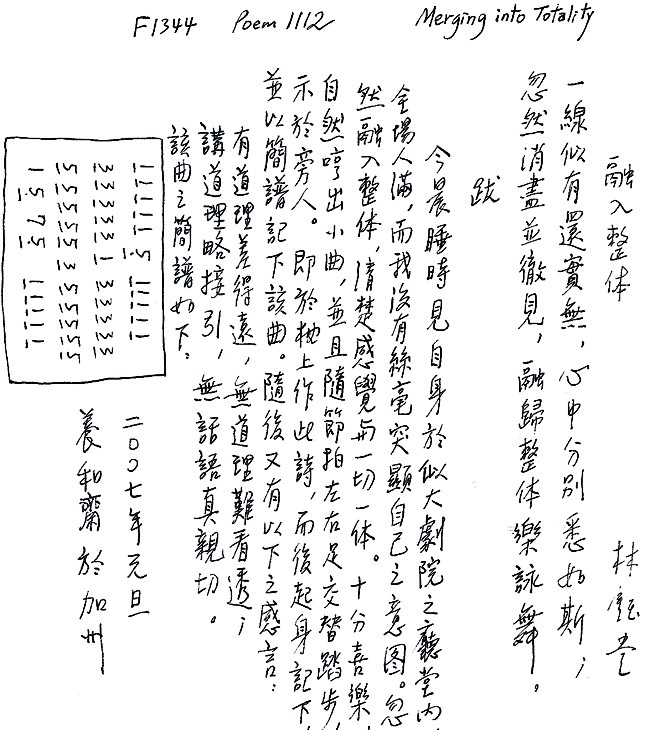 F1344 Poem 1112 Merging into Totality
融入整体
林鈺堂
一線似有還實無，心中分別悉如斯；
忽然消盡並徹見，融歸整体樂詠舞。
跋
今晨睡時見自身於似大劇院之廳堂內，
全場人滿，而我沒有絲毫突顯自己之意图。忽
然融入整体，清楚感覺与一切一体。十分喜樂，
自然哼出小曲，並且隨節拍左右足交替踏步，
示於旁人。即於枕上作此詩，而後起身記下，
並以簡譜記下該曲。隨後又有以下之感言：
有道理差得遠，無道理難看透；
講道理略接引，無話語真親切。
該曲之簡譜如下：
1 1 1 1 1 5 1 1 1 1 1
3 3 3 3 3 1 3 3 3 3 3
5 5 5 5 5 3 5 5 5 5 5
1 5 7 5 1 1 1 1 1
二〇〇七年元旦
養和齋於加州